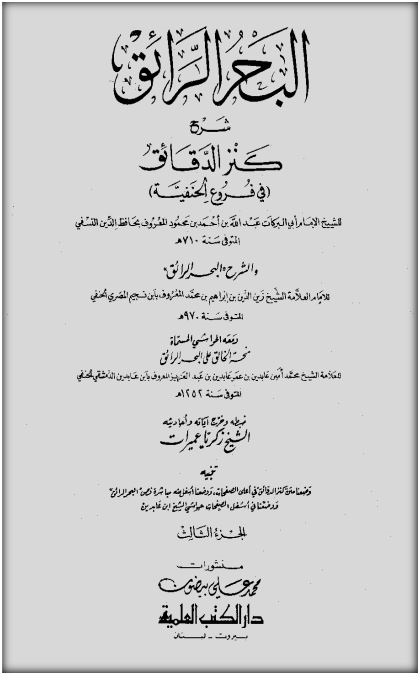 البَحْرُ الرَّائِق
شَرْح
كَنْز الدَّقَائِق
(في فُرُوع الحَنَفِيَّة)
للشيخ الإمام أبي البركات عبد الله بن أحمد بن محمود المعروف بحافظ الدين النسفي
المتوفى سنة ٧١٠هـ
والشرح «البحر الرائق»
للإمام العلامة الشيخ زين الدين بن إبراهيم بن محمد المعروف بابن نجيم المصري الحنفي
المتوفى سنة ٩٧٠هـ
ومعه الحواشي المسماة
منحة الخالق على البحر الرائق
للعلامة الشيخ محمد أمين عابدين بن عمر عابدين بن عبد العزيز المعروف بابن عابدين الدمشقي الحنفي
المتوفى سنة ١٢٥٢هـ
ضبطه وخرج آياته وأحاديثه
الشيخ زكريا عميرات
تنبيه
وضعنا متن كنز الدقائق في أعلى الصفحات، ووضعنا أسفل منه مباشرة نص "البحر الرائق"
ووضعنا في أسفل الصفحات حواشي الشيخ ابن عابدين
الجزء الثالث
منشورات
محمد علي بيضون
دار الكتب العلمية
بيروت - لبنان